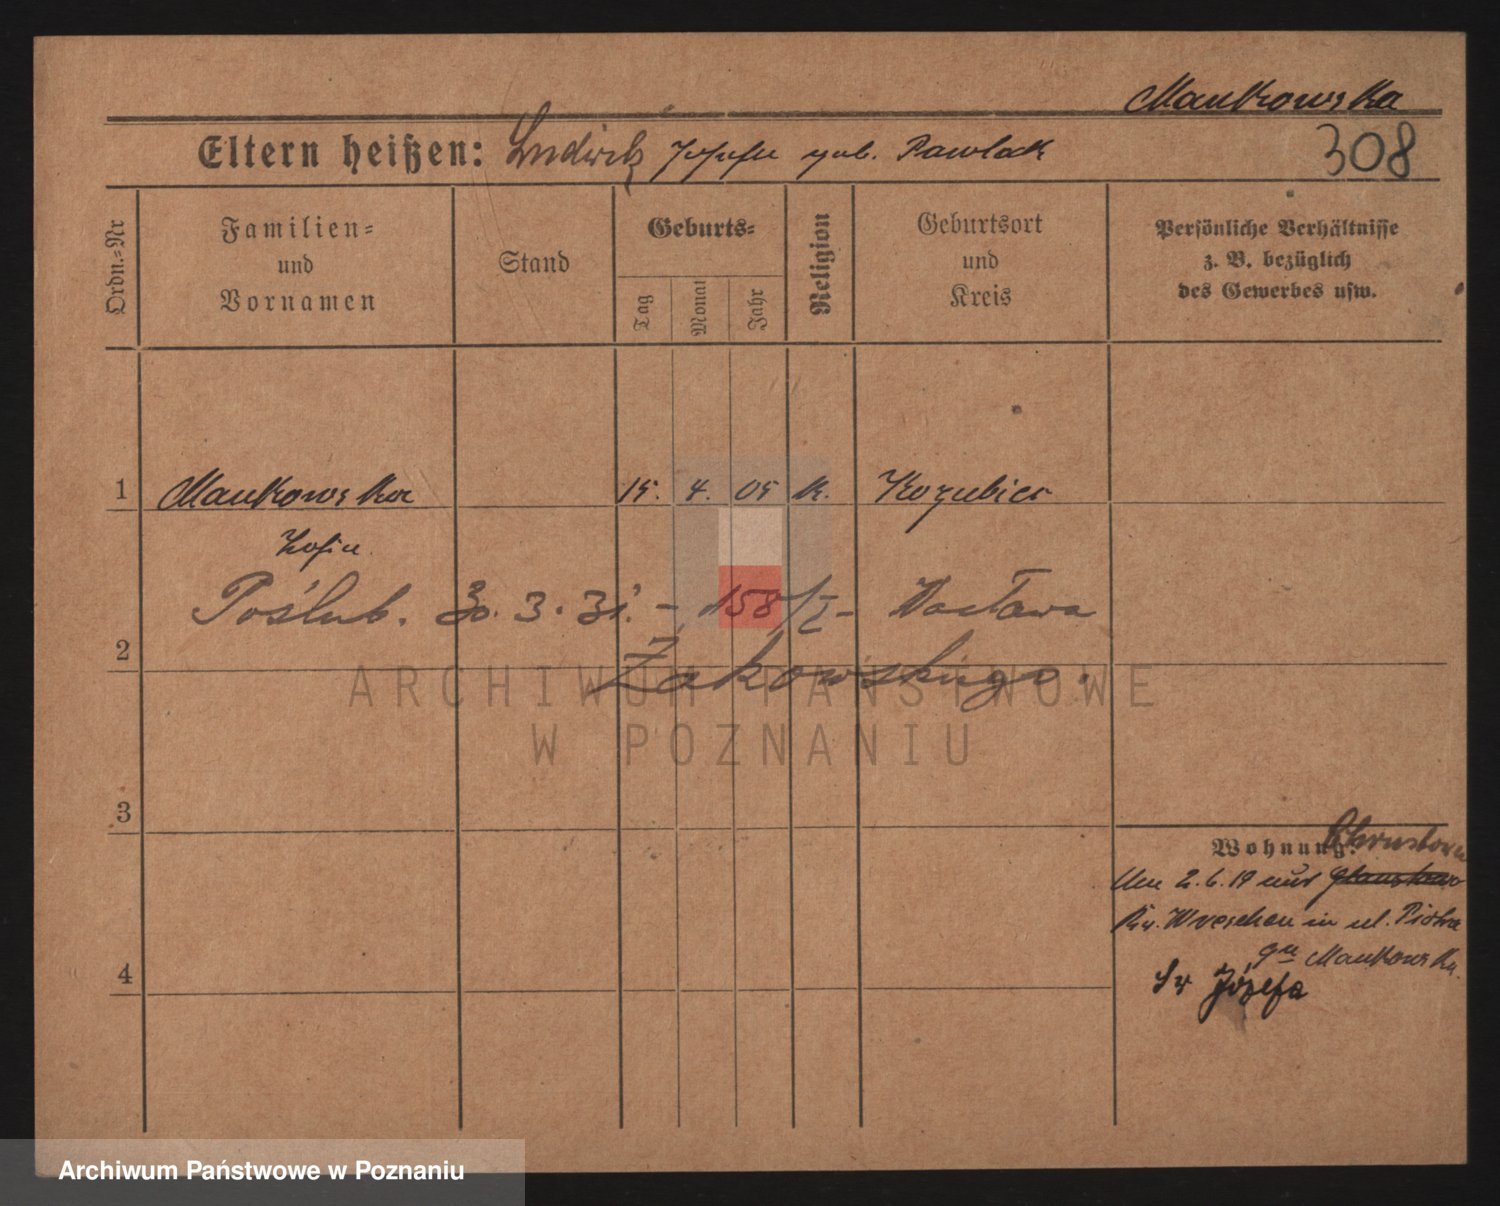 Mankowska
308
Eltern heißen: Ludwik Josefa geb. Pawlak
Ordn.-Nr
Familien-
und
Vornamen
Stand
Geburts-
Tag
Monat
Jahr
Religion
Geburtsort
und
Kreis
Persönliche Verhältnisse
z. B. bezüglich
des Gewerbes usw.
1 Mankowska 15. 4. 05 K. Kozubiec
Zofia
Poślub. 30. 3. 31. – 158/I – Wacława
2
Żakowskiego.
ARCHIWUM PAŃSTWOWE
W POZNANIU
3
Wohnung: Chrustowo
Am 2.6.19 aus
Kr. Wreschen in ul. Piotra
Mankowska.
Józefa
4
Archiwum Państwowe w Poznaniu